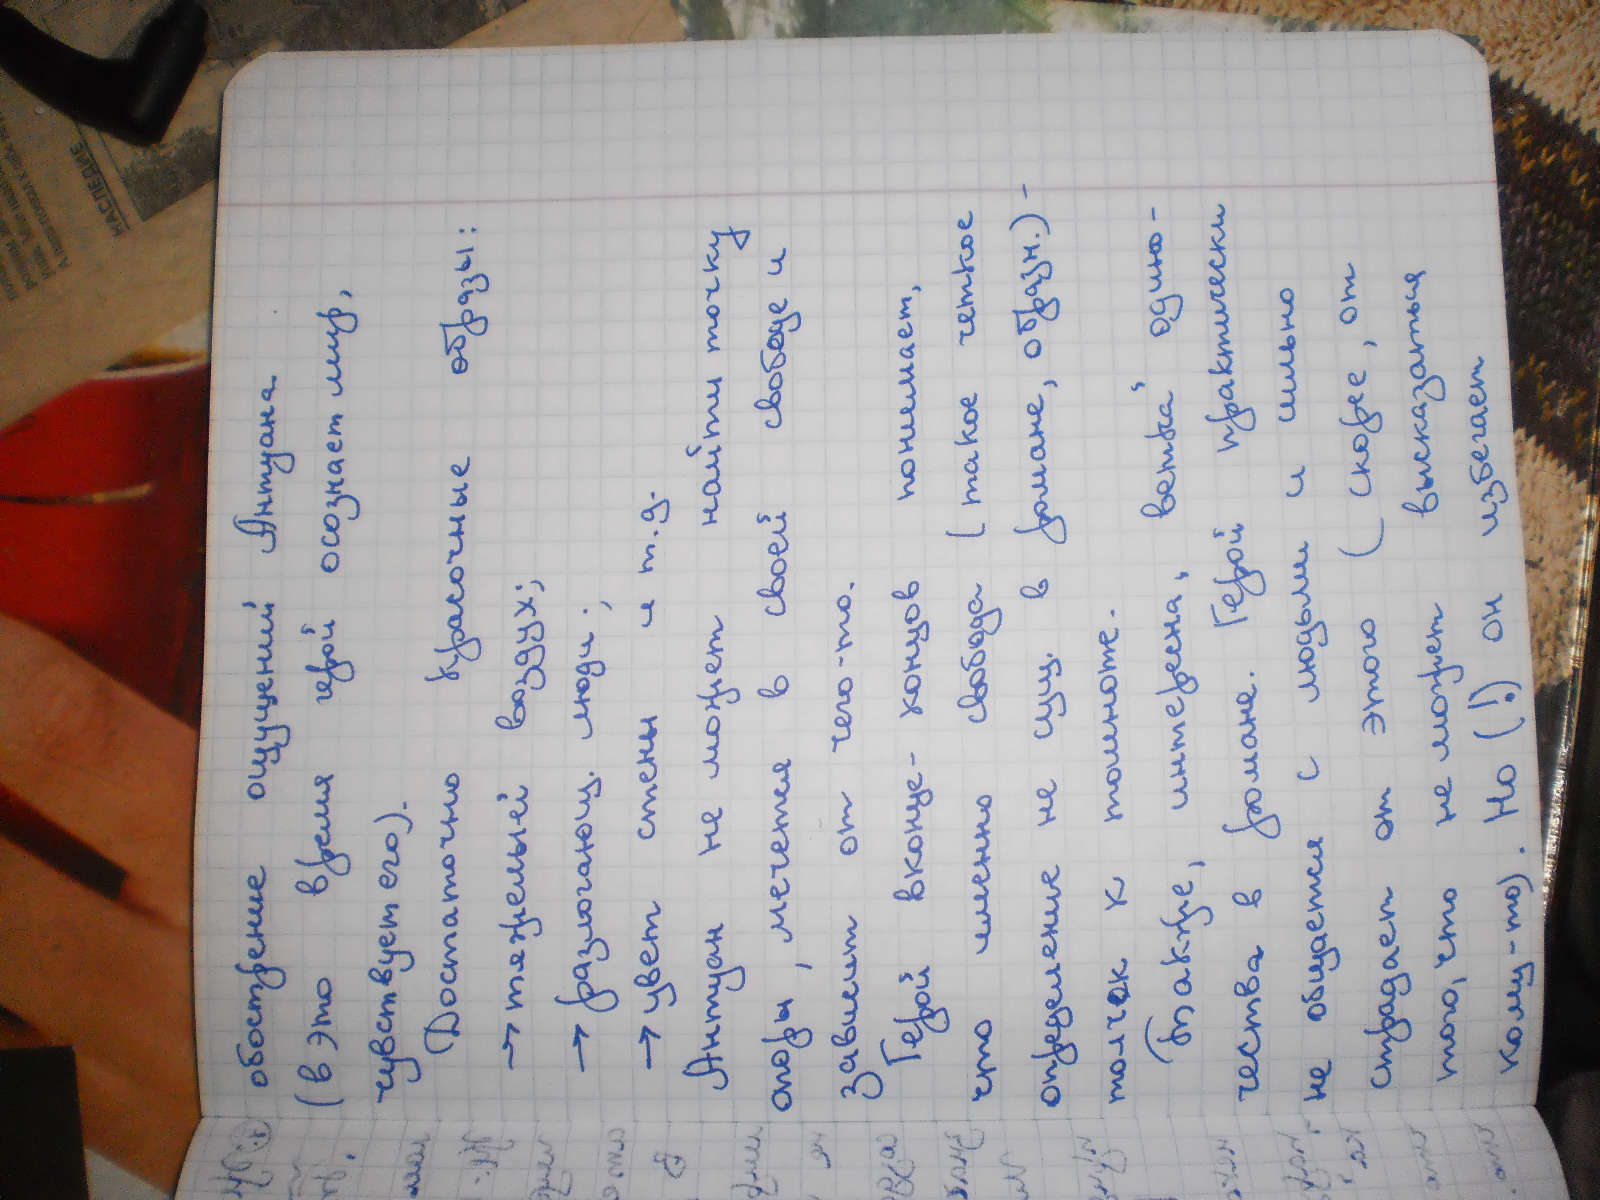 обострение ощущений Антуана
(в это время герой осознает мир,
чувствует его).
Достаточно красочные образы:
→ тяжелый воздух;
→ разлогающ. люди.;
→ цвет стены и т.д.
Антуан не может найти точку
опоры, мечется в своей свободе и
зависит от чего-то.
Герой вконце-концов понимает,
что именно свобода (такое четкое
определение не сущ. в романе, образн.) -
толчок к тошноте.
Также, интересна, ветка' одино-
чества в романе. Герой практически
не общается с людьми и сильно
страдает от этого (скорее, от
того, что не может высказаться
кому-то). Но (!) он избегает
НАСЛЕДИЕ